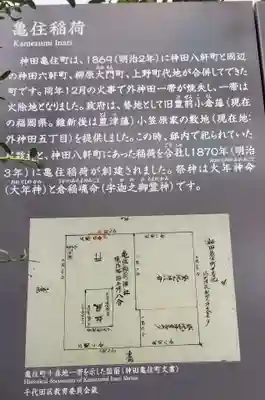 亀住稲荷
Kamezumi Inari
神田亀住町は、1869(明治2年)に神田八軒町と周辺
の神田六軒町、柳原大門町、上野町代地が合併してできた
町です。同年12月の火事で外神田一帯が焼失し、一帯は
火除地となりました。政府は、替地として旧豊前小倉藩(現在
の福岡県。維新後は豊津藩)小笠原家の敷地(現在地:
外神田五丁目)を提供しました。この時、邸内で祀られていた
と、神田八軒町にあった稲荷を合社し1870年(明治
3年)に亀住稲荷が創建されました。祭神は大年神命
(大年神)と倉稲魂命(宇迦之御霊神)です。
亀住町千兵衛地一帯を示した図面(神田亀住町文書)
Historical documents of Kamezumi Inari Shrine
千代田区教育委員会蔵